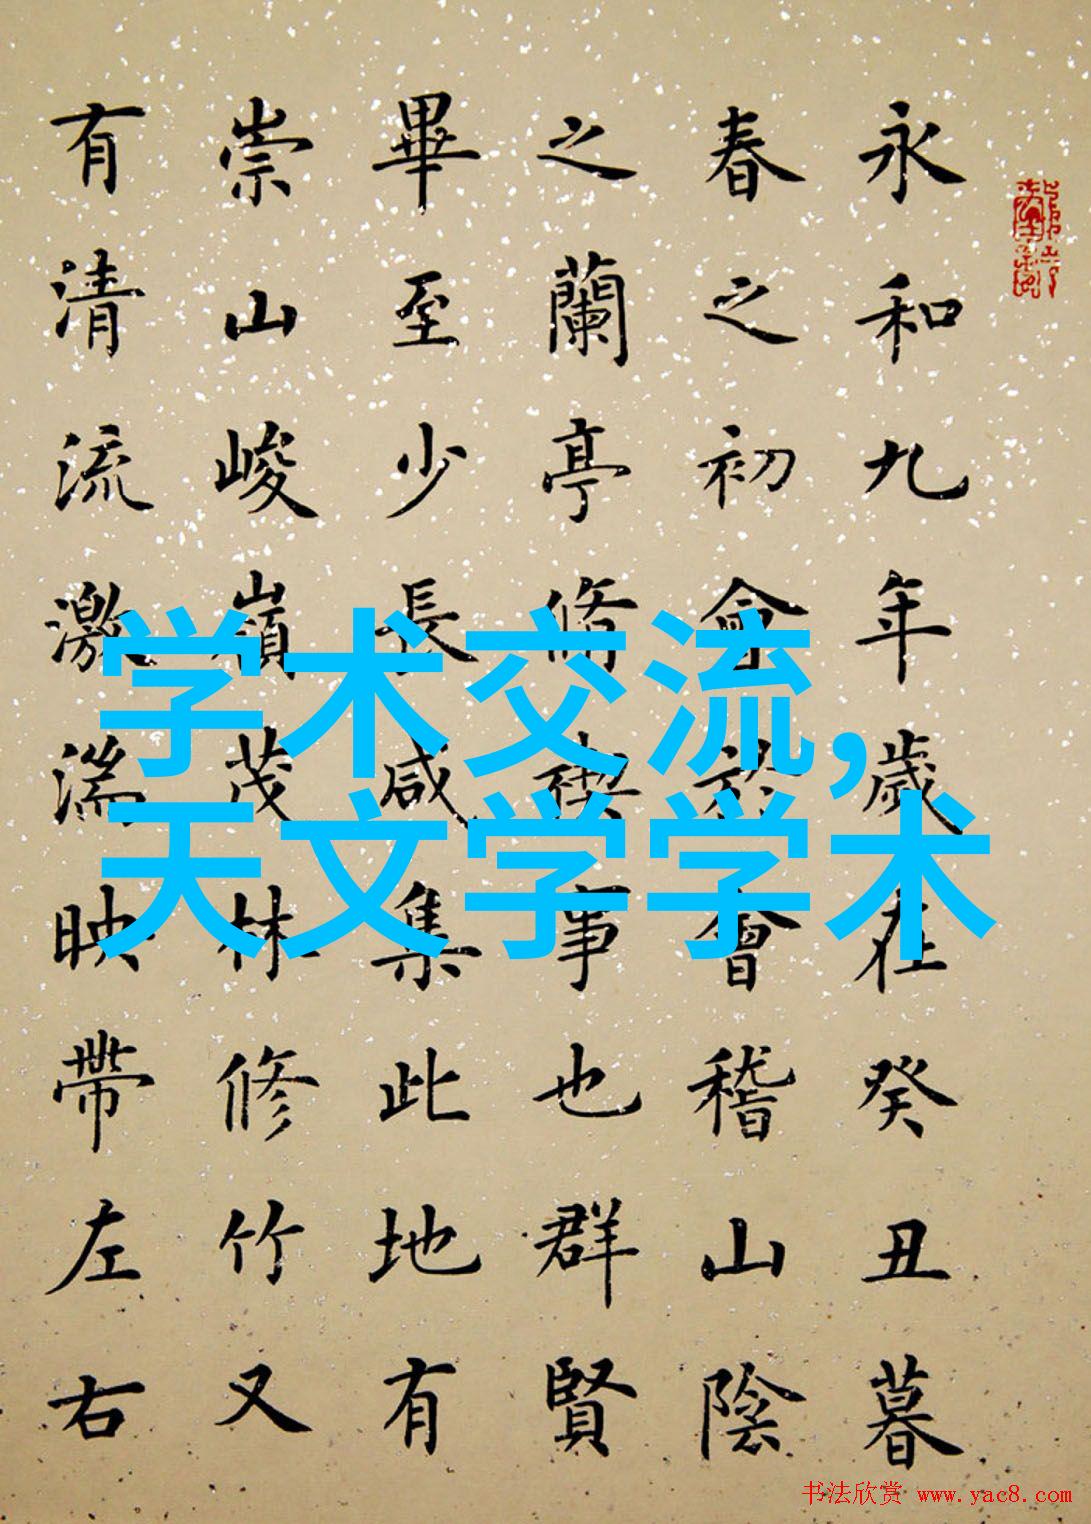 永和九年歲在癸丑暮
春之初會於會稽山陰
之蘭亭脩禊事也群賢
畢至少長咸集此地有
崇山峻嶺茂林修竹又
有清流激湍映帶左右
学术交流,
天文学学术
书法欣赏 www.yac8.com